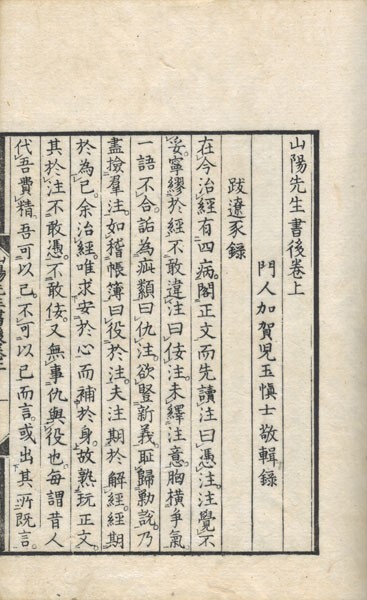 山陽先生書後卷上
門人加賀児玉愼士敬輯錄
跋遼豕錄
在今治經有四病。閣正文而先讀注曰憑注。注覺不
妥。寧繆於經不敢違注曰佞注。未繹注意。胸橫爭氣
一語不合。詬為疵纇曰仇注。欲豎新義。恥歸勦說。乃
盡撿羣注。如稽帳簿曰役於注。夫注期於解經。經期
於為己。余治經。唯求安於心而補於身。故熟玩正文。
其於注不敢憑。不敢佞。又無事仇與役也。每謂昔人
代吾費精。吾可以已。不可以已而言。或出其所既言。